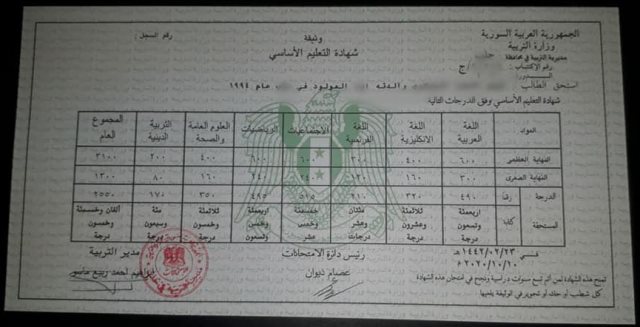 الجمهورية العربية السورية
وزارة التربية
مديرية التربية في محافظة
رقم الاكتتاب: /ج
الدورة:
وثيقة
شهادة التعليم الأساسي
رقم السجل:
استحق الطالب والدته المولود في عام ١٩٩٤
شهادة التعليم الأساسي وفق الدرجات التالية
المواد اللغة العربية اللغة الانكليزية اللغة الفرنسية الاجتماعيات الرياضيات العلوم العامة والصحة التربية الدينية المجموع العام
النهاية العظمى ٦٠٠ ٤٠٠ ٣٠٠ ٦٠٠ ٦٠٠ ٤٠٠ ٢٠٠ ٣١٠٠
النهاية الصغرى ٣٠٠ ١٦٠ ١٢٠ ٢٤٠ ٢٤٠ ١٦٠ ٨٠ ١٣٠٠
الدرجة المستحقة رقما ٤٩٠ ٣٢٠ ٢١٠ ٥١٥ ٤٩٥ ٣٥٠ ١٧٠ ٢٥٥٠
كتابة اربعمئة وتسعون درجة ثلاثمئة وعشرون درجة مئتان وعشر درجات خمسمئة وخمس عشر اربعمئة وخمس وتسعون ثلاثمئة وخمسون درجة مئة وسبعون درجة الفان وخمسمئة وخمسون درجة
في ١٤٤٢/٠٢/٢٣هـ
٢٠٢٠/١٠/١٠م
رئيس دائرة الامتحانات
عصام ديوان
مدير التربية
ابراهيم احمد ربيع
تمنح هذه الشهادة لمن أتم تسع سنوات دراسية ونجح في امتحان هذه الشهادة
كل شطب أو حك أو تحوير في الوثيقة يلغيها